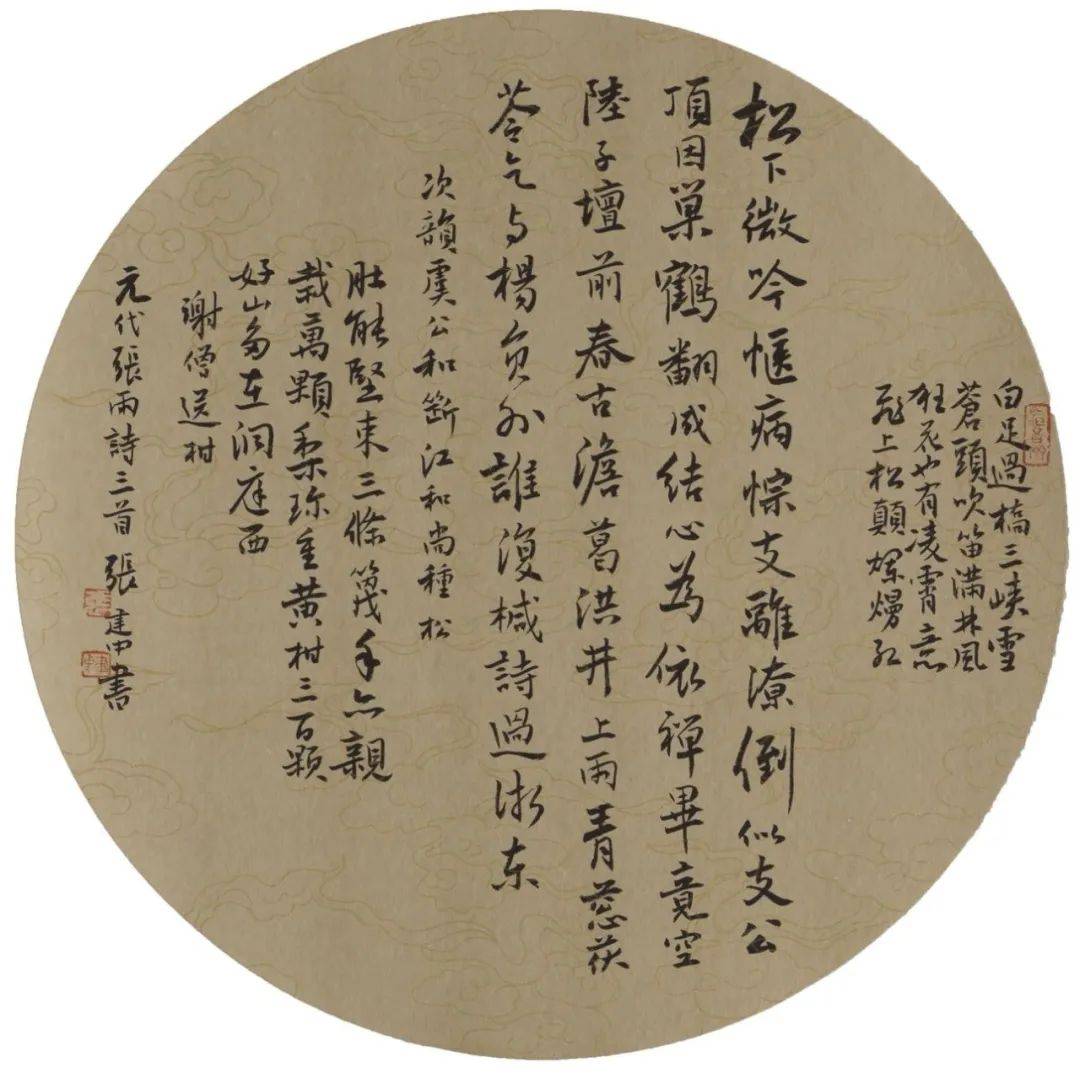 白足過橋三峽雪
蒼頭吹笛滿林風
狂花也有凌霄意
飛上松顛爛熳紅
松下微吟愜病悰支離潦倒似支公
頂因巢鶴翻成結心為依禪畢竟空
陸子壇前春古澹葛洪井上雨青蔥茯
苓乞與楊負外誰復椷詩過浙東
次韻虞公和斷江和尚種松
肚能堅束三條篾手亦親
栽萬顆梨珍重黃柑三百顆
好山多在洞庭西
謝僧送柑
元代張雨詩三首張建中書